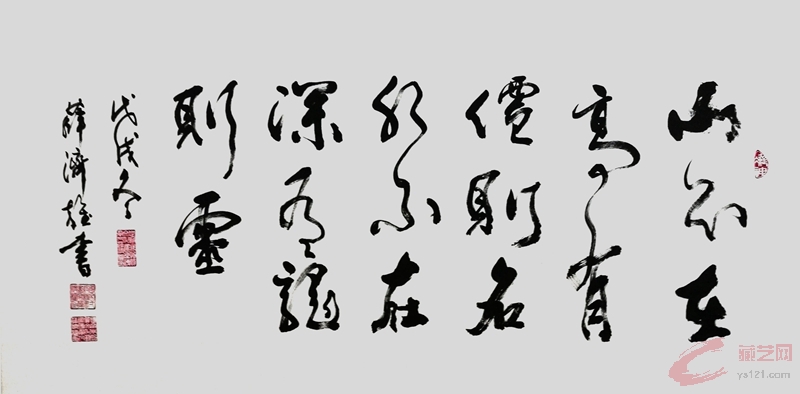 山不在
高有
僊則名
水不在
深有龍
則靈
戊戌冬
薛濟雄書
藏艺网
ys121.com